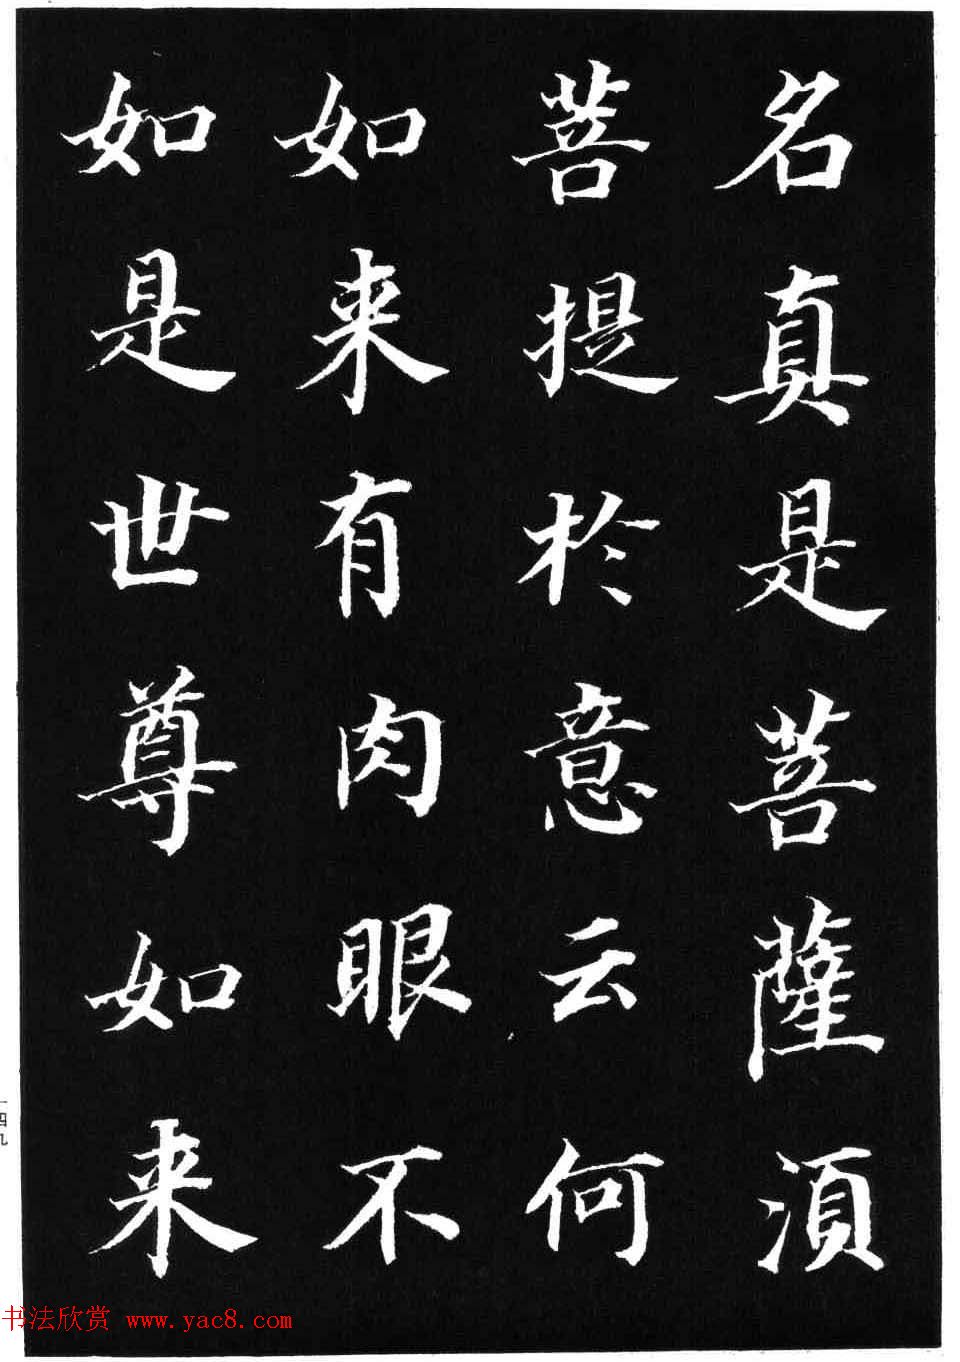 名真是菩薩湏
菩提於意云何
如来有肉眼不
如是世尊如来
一四九
书法欣赏 www.yac8.com